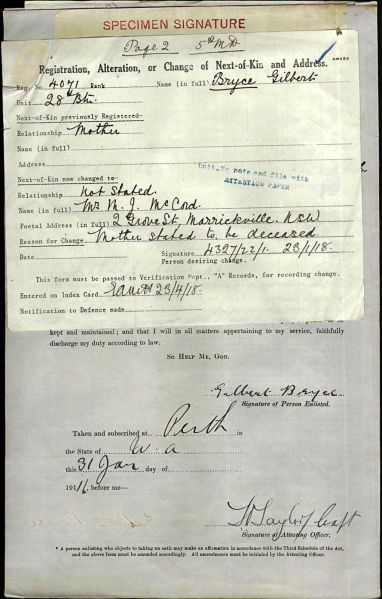 SPECIMEN SIGNATURE
Page 2 5th M.D.
Registration, Alteration, or Change of Next-of-Kin and Address.
Reg. No. 4071 Rank Name (in full) Bryce Gilbert
Unit 28th Btn.
Next-of-Kin previously Registered-
Relationship Mother
Name (in full)
Address
Unit to note and file with
ATTASTION PAPER
Next-of-Kin now changed to-
Relationship Not Stated.
Name (in full) Mr M. J. McCord.
Postal Address (in full) 2 Grove St. Marrickville. NSW
Reason for Change Mother stated to be deceased
Date Signature 4327/22/1. 23/1/18.
Person desiring change.
This form must be passed to Verification Dept., "A" Records, for recording change.
Entered on Index Card 23/4/18.
Notification to Defence made
kept and maintained; and that I will in all matters appertaining to my service, faithfully
discharge my duty according to law.
SO HELP ME, GOD.
Gilbert Bryce
Signature of Person Enlisted.
Taken and subscribed at Perth in
the State of W.A
this 31 Jan day of
1916 before me—
Taylor Capt
Signature of Attesting Officer.
* A person enlisting who objects to taking an oath may make an affirmation in accordance with the Third Schedule of the Act,
and the above form must be amended accordingly. All amendments must be initialed by the Attesting Officer.